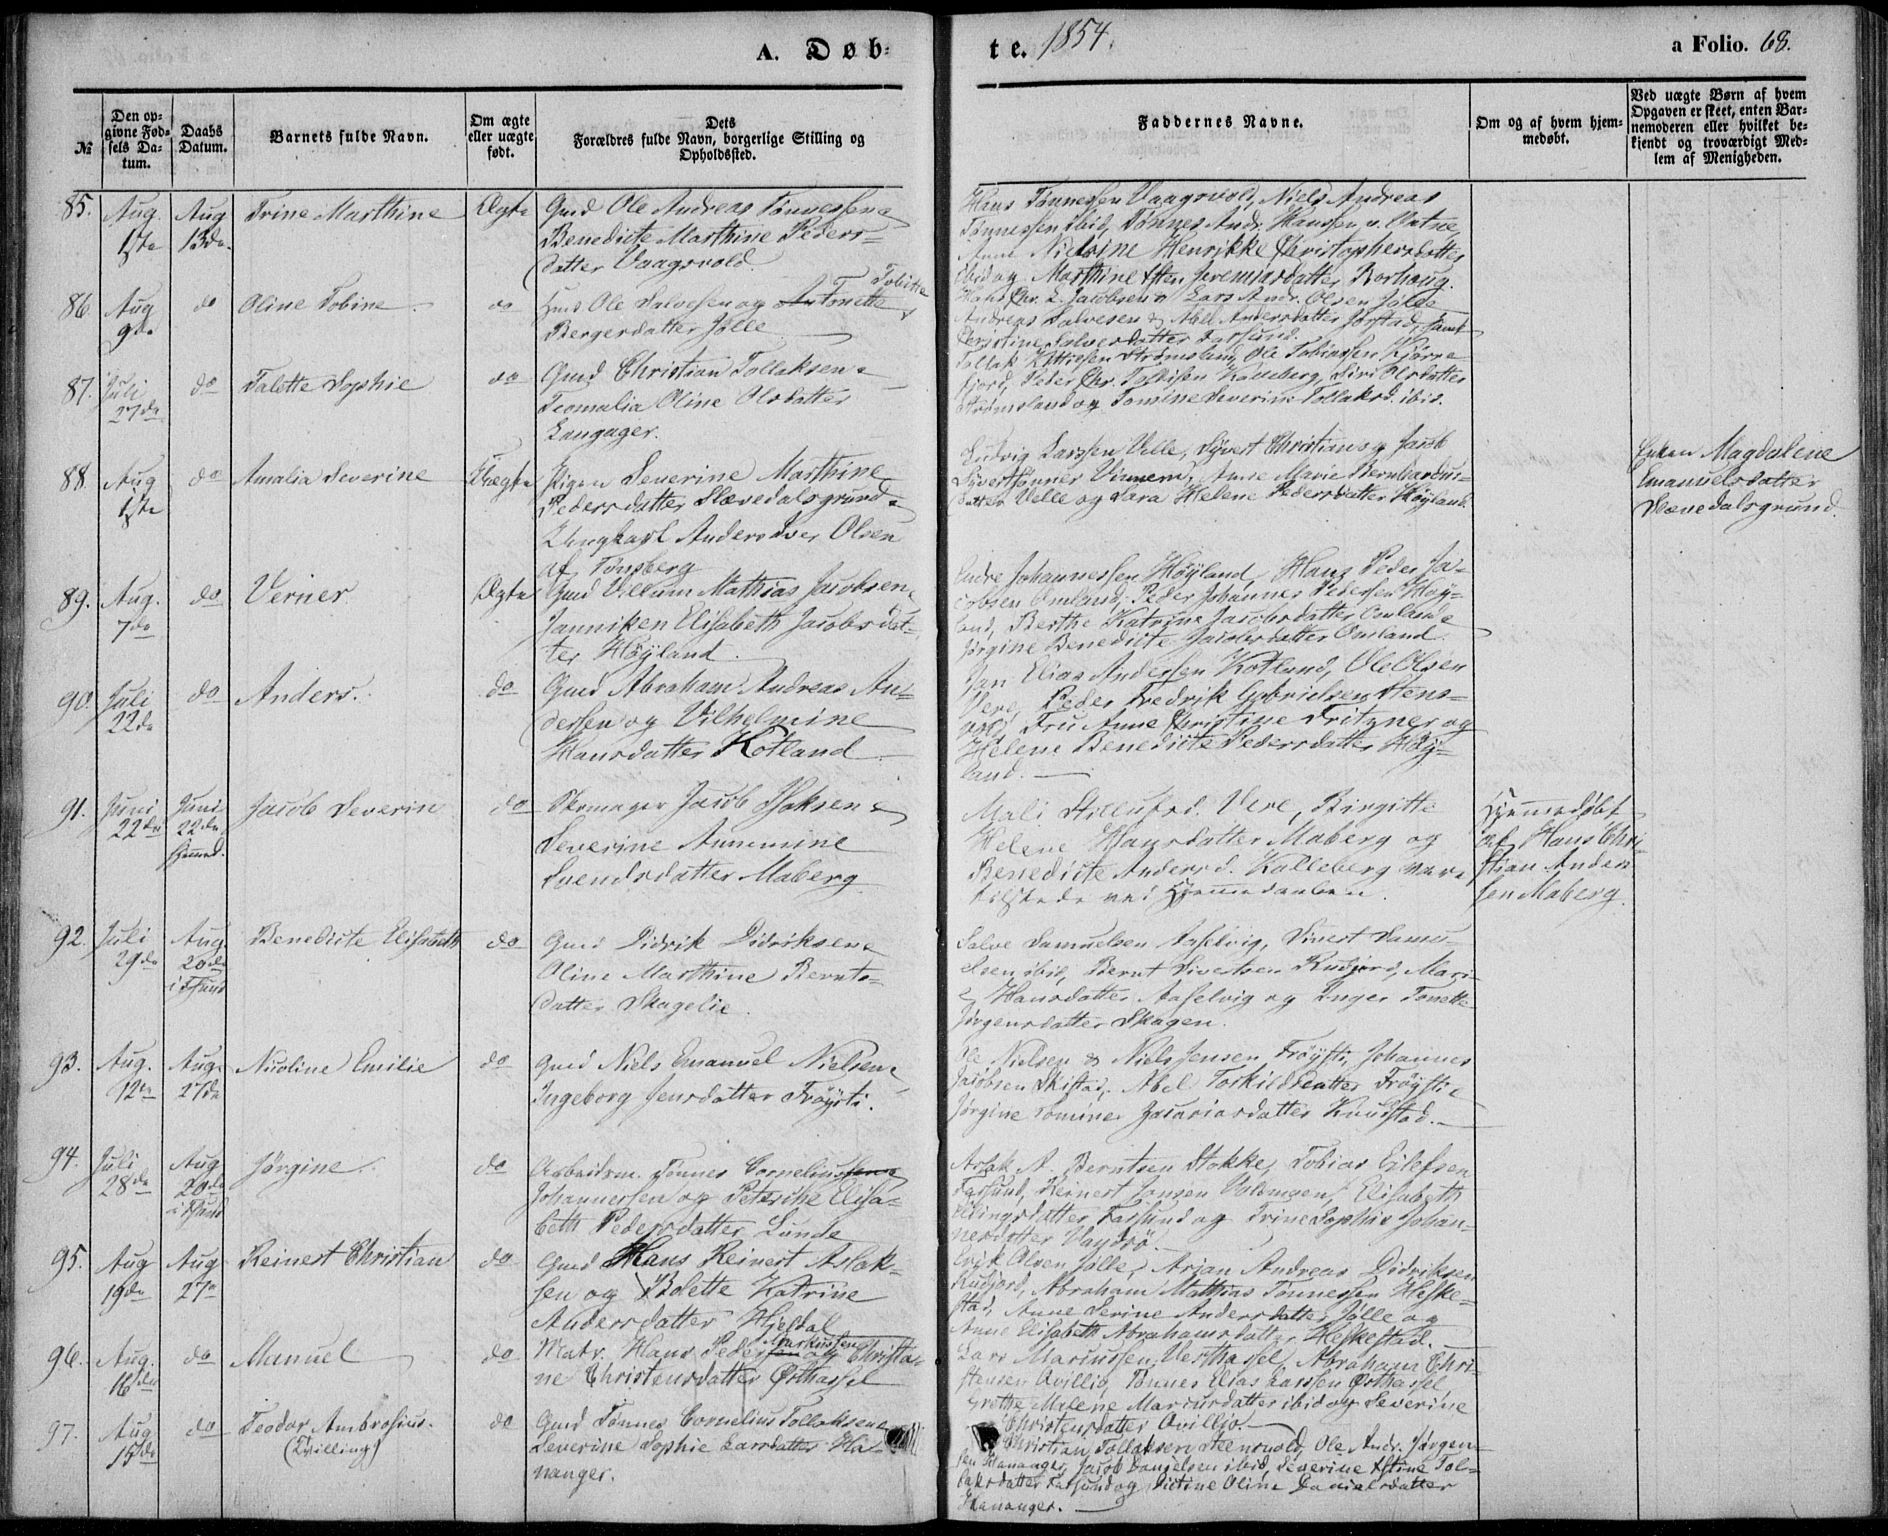 A. Døb-
te. 1854.
a Folio. 68.
№
Den op-
givne Fød-
sels Da-
tum.
Daabs
Datum.
Barnets fulde Navn.
Om ægte
eller uægte
født.
Dets
Forældres fulde Navn, borgerlige Stilling og
Opholdssted.
Faddernes Navne.
Om og af hvem hjem-
medøbt.
Ved uægte Børn af hvem
Opgaven er skeet, enten Bar-
nemoderen eller hvilket be-
kjendt og troværdigt Med-
lem af Menigheden.
85. Aug. 1ste
Aug 13de
Trine Marthine
Ægte
Gmd Ole Andreas Tønnessen
Benedicte Marthine Peders-
datter Vaagsvold.
Hans Tønnessen Vaagsvold, Niels Andreas
Tønnessen ibid, Tønnes Andr. Hanssen
Anne Nielsine Henrikke Christophersdatter
ibid og Marthine Jeremiasdatter Borhaug.
86. Aug 9de
do
Oline Tobine
do
Huus Ole Salvesen og Tobitte
Bergersdatter Jølle
Hans Chr. L. Jacobsen & Lars Andr. Olsen Jølle
Andreas Salvesen & Abel Andersdatter Jørstad, samt
Christine Salvesdatter Farsund.
87. Juli 27de
do
Talette Sophie
do
Gmd Christian Tollaksen &
Teomalia Oline Olsdatter
Langager.
Tollak Strømsland, Ole Tobiassen Kjørre-
fjord, Peder Chr. Kalleberg, Siri Olsdatter
Strømsland og Tomine Severine Tollaksd. ibid.
88. Aug 1ste
do
Amalia Severine
Uægte
Pigen Severine Marthine
Pedersdatter Slævedalsgrund &
Ungkarl Anders Olsen
af Tønsberg
Ludvig Larssen Velle, Syvert Christians & Jacob
Syvertsønner Vinnem, Anne Marie Bernhardus-
datter Velle og Sara Helene Pedersdatter Høyland.
Enken Magdalene
Emanuelsdatter
Slævedalsgrund.
89. Aug. 7de
do
Verner
Ægte
Gmd Villum Mathias Jacobsen &
Janniken Elisabeth Jacobsdat-
ter Høyland.
Endre Johannessen Høyland, Hans Peder Ja-
cobsen Omland, Peder Johannes Pedersen Høy-
land, Berthe Katrine Jacobsdatter Omland &
Jørgine Benedicte Jacobsdatter Omland.
90. Juli 22de
do
Anders.
do
Gmd Abraham Andreas An-
dersen og Vilhelmine
Hansdatter Kotland
Jan Elias Andersen Kotland, Ole Olsen
Vere, Peder Fredrik Gabrielsen Stens-
vold, Fru Anne Christine Fritzner og
Helene Benedicte Pedersdatter Høy-
land.
91. Juni 22de
Juni 22de
hjemmed.
Jacob Severin
do
Skomager Jacob Isaksen &
Severine Annemine
Svendsdatter Maberg
Mali Vere, Birgitte
Helene Hansdatter Maberg og
Benedicte Andersd. Kalleberg vare
tilstede ved Hjemmedaaben.
Hjemmedøbt
af Hans Chri-
stian Ander-
sen Maberg.
92. Juli 29de
Aug. 20de
i Fsund
Benedicte Elisabeth
do
Gmd Didrik Didriksen &
Oline Marthine Bernts-
datter Skagelie.
Salve Samuelsen Aaselvig, Sivert Samu-
elsen ibid, Bernt Sivertsen Kudfjord, Mari-
e Hansdatter Aaselvig og Inger Tonette
Jørgensdatter Skagen.
93. Aug. 12te
Aug. 27de
Nicoline Emilie
do
Gmd Niels Emanuel Nielsen &
Ingeborg Jensdatter Frøysti.
Ole Nielsen & Niels Jensen Frøysti, Johannes
Jacobsen Skistad, Abel Torkildsdatter Frøysti &
Jørgine Tomine Zacariasdatter Knudstad.
94. Juli 28de
Aug 20de
i Fsund
Jørgine
do
Arbeidsm. Tønnes Cornelius
Johannessen og Petrikke Elisa-
beth Pedersdatter Lunde
Aslak A. Berntsen Stokke, Tobias Eilefsen
Farsund, Reinert Jansen, Elisabeth
Ellingsdatter Farsund og Trine Sophie Johan-
nesdatter
95. Aug 19de
Aug 27de
Reinert Christian
do
Gmd Hans Reinert Aslak-
sen og Bolette Katrine
Andersdatter Hjeldal
Erik Olsen Jølle, Arian Andreas Didriksen
Kudfjord, Abraham Mathias Tønnessen Heske-
stad, Anne Serine Andersdatter Jølle og
Anne Elisabeth Abrahamsdatter Heskestad.
96. Aug. 16de
do
Manuel
do
Matr. Hans Peder Markussen og Christia-
ne Christensdatter Østhassel
Lars Mariussen Vesthassel, Abraham Chri-
stensen Qvillio, Tønnes Elias Larssen Østhassel
Grethe Malene Mariusdatter ibid og Severine
Christensdatter Qvillio.
97. Aug 15de
do
Teodor Ambrosius.
(Tvilling)
do
Gmd Tønnes Cornelius Tollaksen &
Severine Sophie Larsdatter Ha-
nanger.
Christian Tollaksen Steensvold, Ole Andr. Jørgen-
sen Hananger, Jacob Danielsen ibid, Severine Tol-
laksdatter Farsund og Oline Danielsdatter
Hananger.